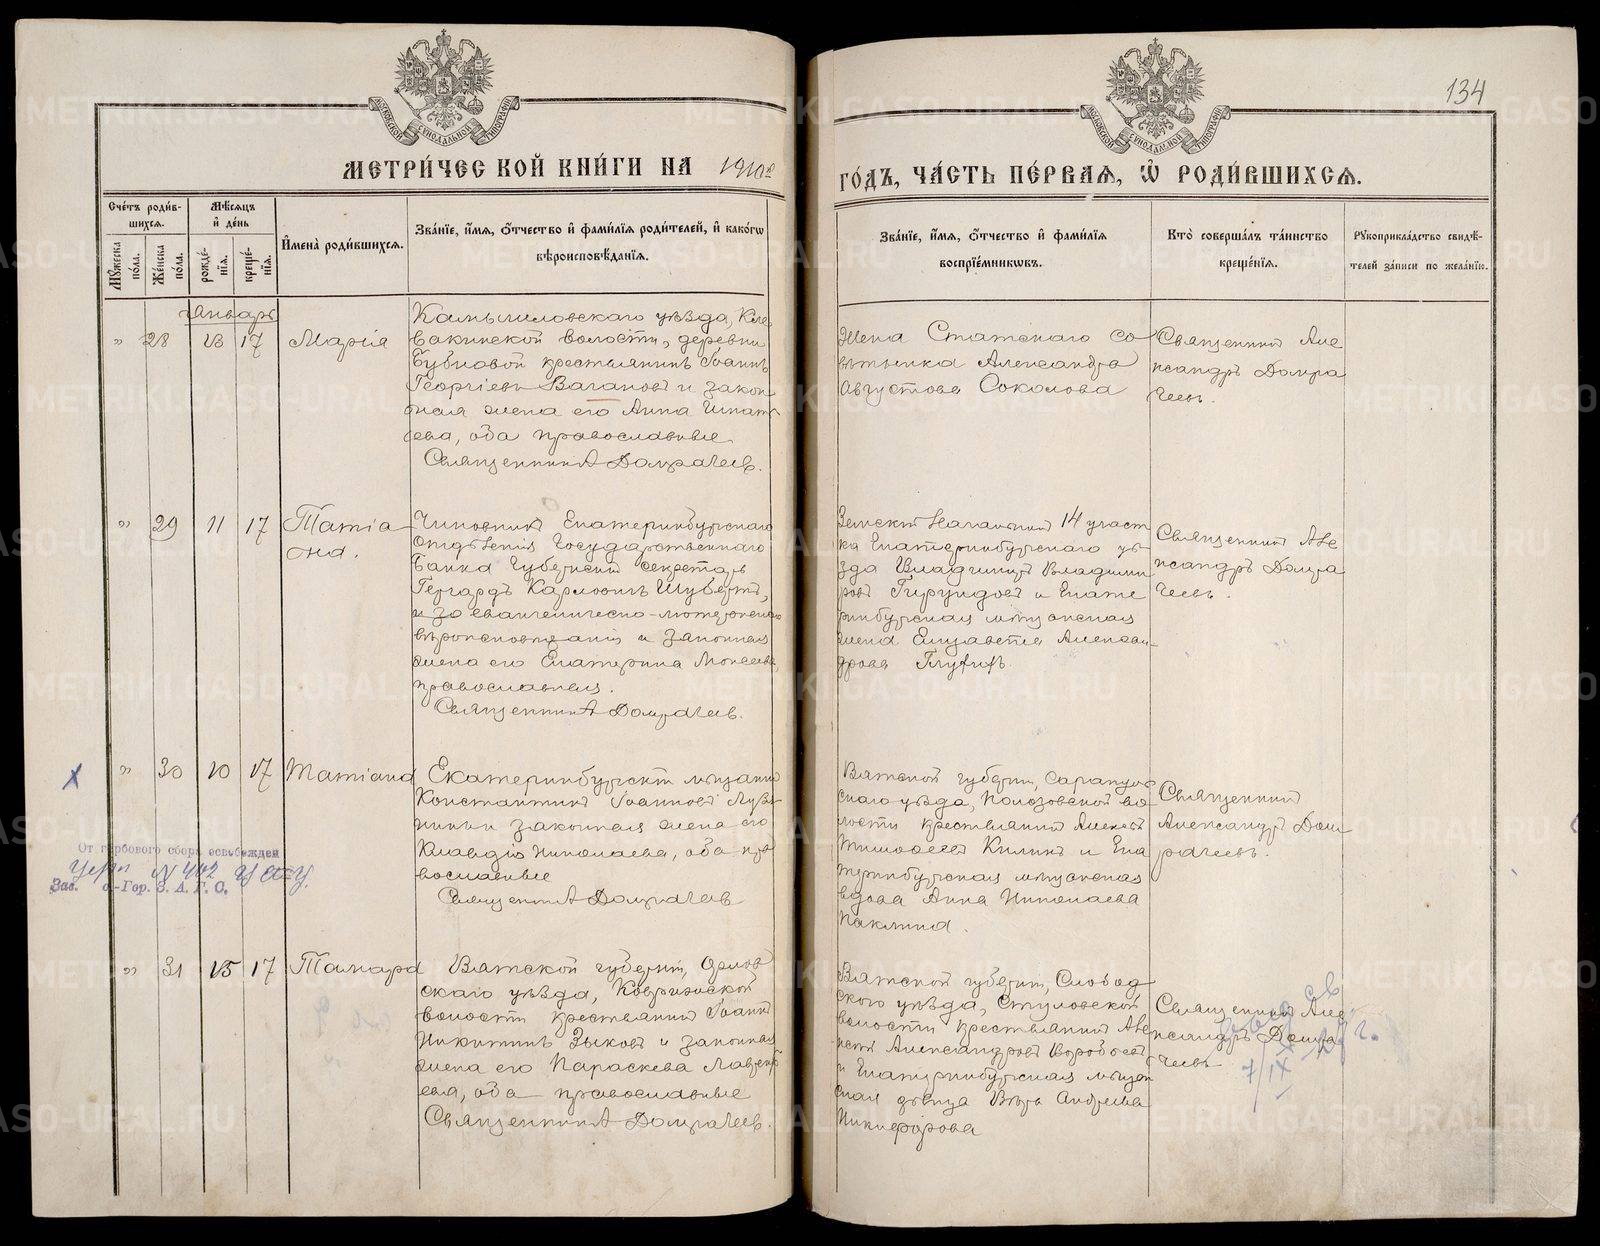 134
МОСКОВСКОЙ СѴНОДАЛЬНОЙ ТИПОГРАФІИ
МОСКОВСКОЙ СѴНОДАЛЬНОЙ ТИПОГРАФІИ
МЕТРИ́ЧЕС КОЙ КНИ́ГИ НА 1910 г
ГО́ДЪ, ЧА́СТЬ ПЕ́РВАЯ, Ѽ РОДИ́ВШИХСЯ.
Сче́тъ роди́в-
шихся.
Мѣ́сяцъ
и҆ де́нь
Мꙋ́жеска
по́ла.
Же́нска
по́ла.
рожде́-
нїя.
креще́-
нїя.
И҆мена̀ роди́вшихся.
Зва́нїе, и҆́мя, ѻ҆́тчество и҆ фами́лїя роди́телей, и҆ како́гѡ
вѣроисповѣ́данїя.
Зва́нїе, и҆́мя, ѻ҆́тчество и҆ фами́лїя
воспрїе́мникѡвъ.
Кто̀ соверша́лъ та́инство
креще́нїя.
Рꙋкоприкла́дство свидѣ́-
телей за́писи по жела́нїю.
Январь
„ 28 13 17 Марія
Камышловскаго уѣзда, Кле
вакинской волости, деревни
Бубновой крестьянинъ Іоаннъ
Георгіевъ Вагановъ и закон
ная жена его Анна Игнать
ева, оба православные
Священникъ А Домрачеев.
Жена Статскаго Со
вѣтника Александра
Августова Соколова
Священникъ Але
ксандръ Домра
чеевъ.
„ 29 11 17 Татіа
на.
Чиновникъ Екатеринбургскаго
Отдѣленія Государственнаго
Банка Губернскій секретарь
Гергардъ Карловичъ Шубертъ,
евангелическо-лютеранскаго
вѣроисповѣданія и законная
жена его Екатерина Моисеева,
православная.
Священникъ А Домрачеев.
Земскій Начальникъ 14 участ
ка Екатеринбургскаго уѣ
зда Владимиръ Владими
ровъ и Екате
ринбургская мѣщанская
жена Елизавета Алексан
дрова
Священникъ Але
ксандръ Домра
чеевъ.
„ 30 10 17 Татіана
Екатеринбургскій мѣщанинъ
Константинъ Іоанновъ
и законная жена его
Клавдія Николаева, оба пра
вославные
Священникъ А Домрачеев
Вятской губерніи, Сарапуль
скаго уѣзда, Полозовской во
лости крестьянинъ Алексѣй
Тимофеевъ Килинъ и Ека
теринбургская мѣщанская
вдова Анна Николаева
Паклина.
Священникъ
Александръ Дом
рачеевъ.
От гербового сбора освобожден
N 402
Зав. о.-Гор. З. А. Г. С.
„ 31 15 17 Тамара
Вятской губерніи, Орлов
скаго уѣзда, Коврижской
волости крестьянинъ Іоаннъ
Никитинъ Зыковъ и законная
жена его Параскева Лаврентъ
ева, оба православные
Священникъ А Домрачеев.
Вятской губерніи, Слобод
ского уѣзда, Стуловской
волости крестьянинъ Але
ксѣй Александровъ Воробьевъ
и Екатеринбургская мѣщан
ская дѣвица Вѣра Андреева
Никифорова
Священникъ Але
ксандръ Домра
чеевъ
7/IX
METRIKI.GASO-URAL.RU